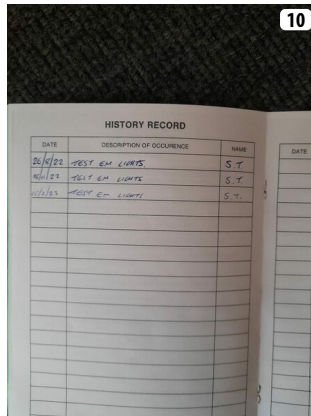 10
HISTORY RECORD
DATE DESCRIPTION OF OCCURENCE NAME
26/8/22 TEST EM LIGHTS S.T.
TEST EM LIGHTS S.T.
TEST EM LIGHTS S.T.
DATE